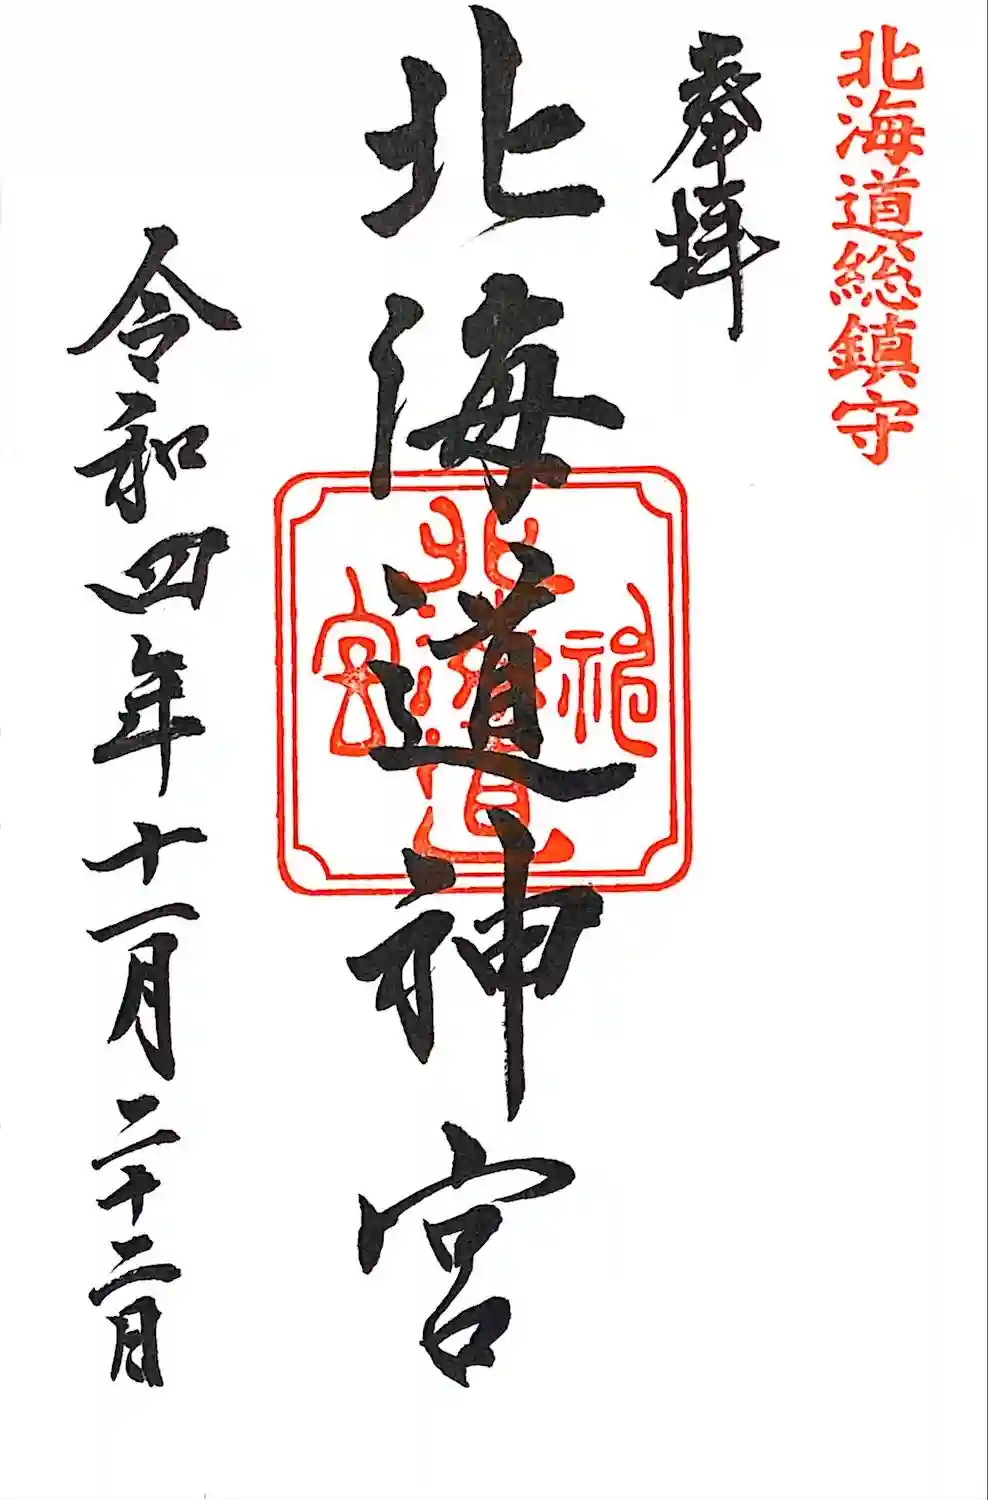 北海道総鎮守
奉拝
北海道神宮
北海道神宮
令和四年十一月二十二日